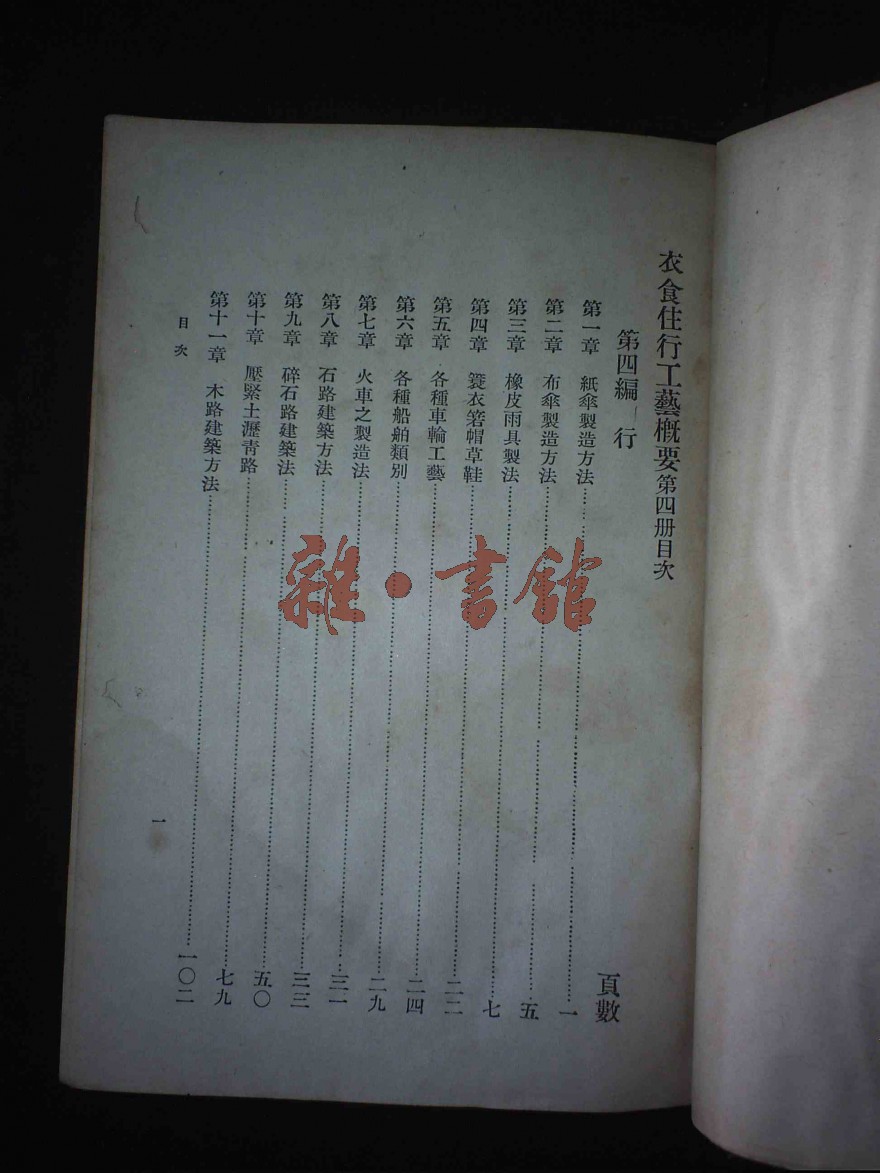 衣食住行工藝概要第四册目次
第四編－行
頁數
第一章　紙傘製造方法……一
第二章　布傘製造方法……五
第三章　橡皮雨具製法……七
第四章　簑衣箬帽草鞋……二二
第五章　各種車輪工藝……二四
第六章　各種船舶類別……二九
第七章　火車之製造法……三一
第八章　石路建築方法……三三
第九章　碎石路建築法……五〇
第十章　壓緊土瀝青路……七九
第十一章　木路建築方法……一〇二
目次
一
雜·書館